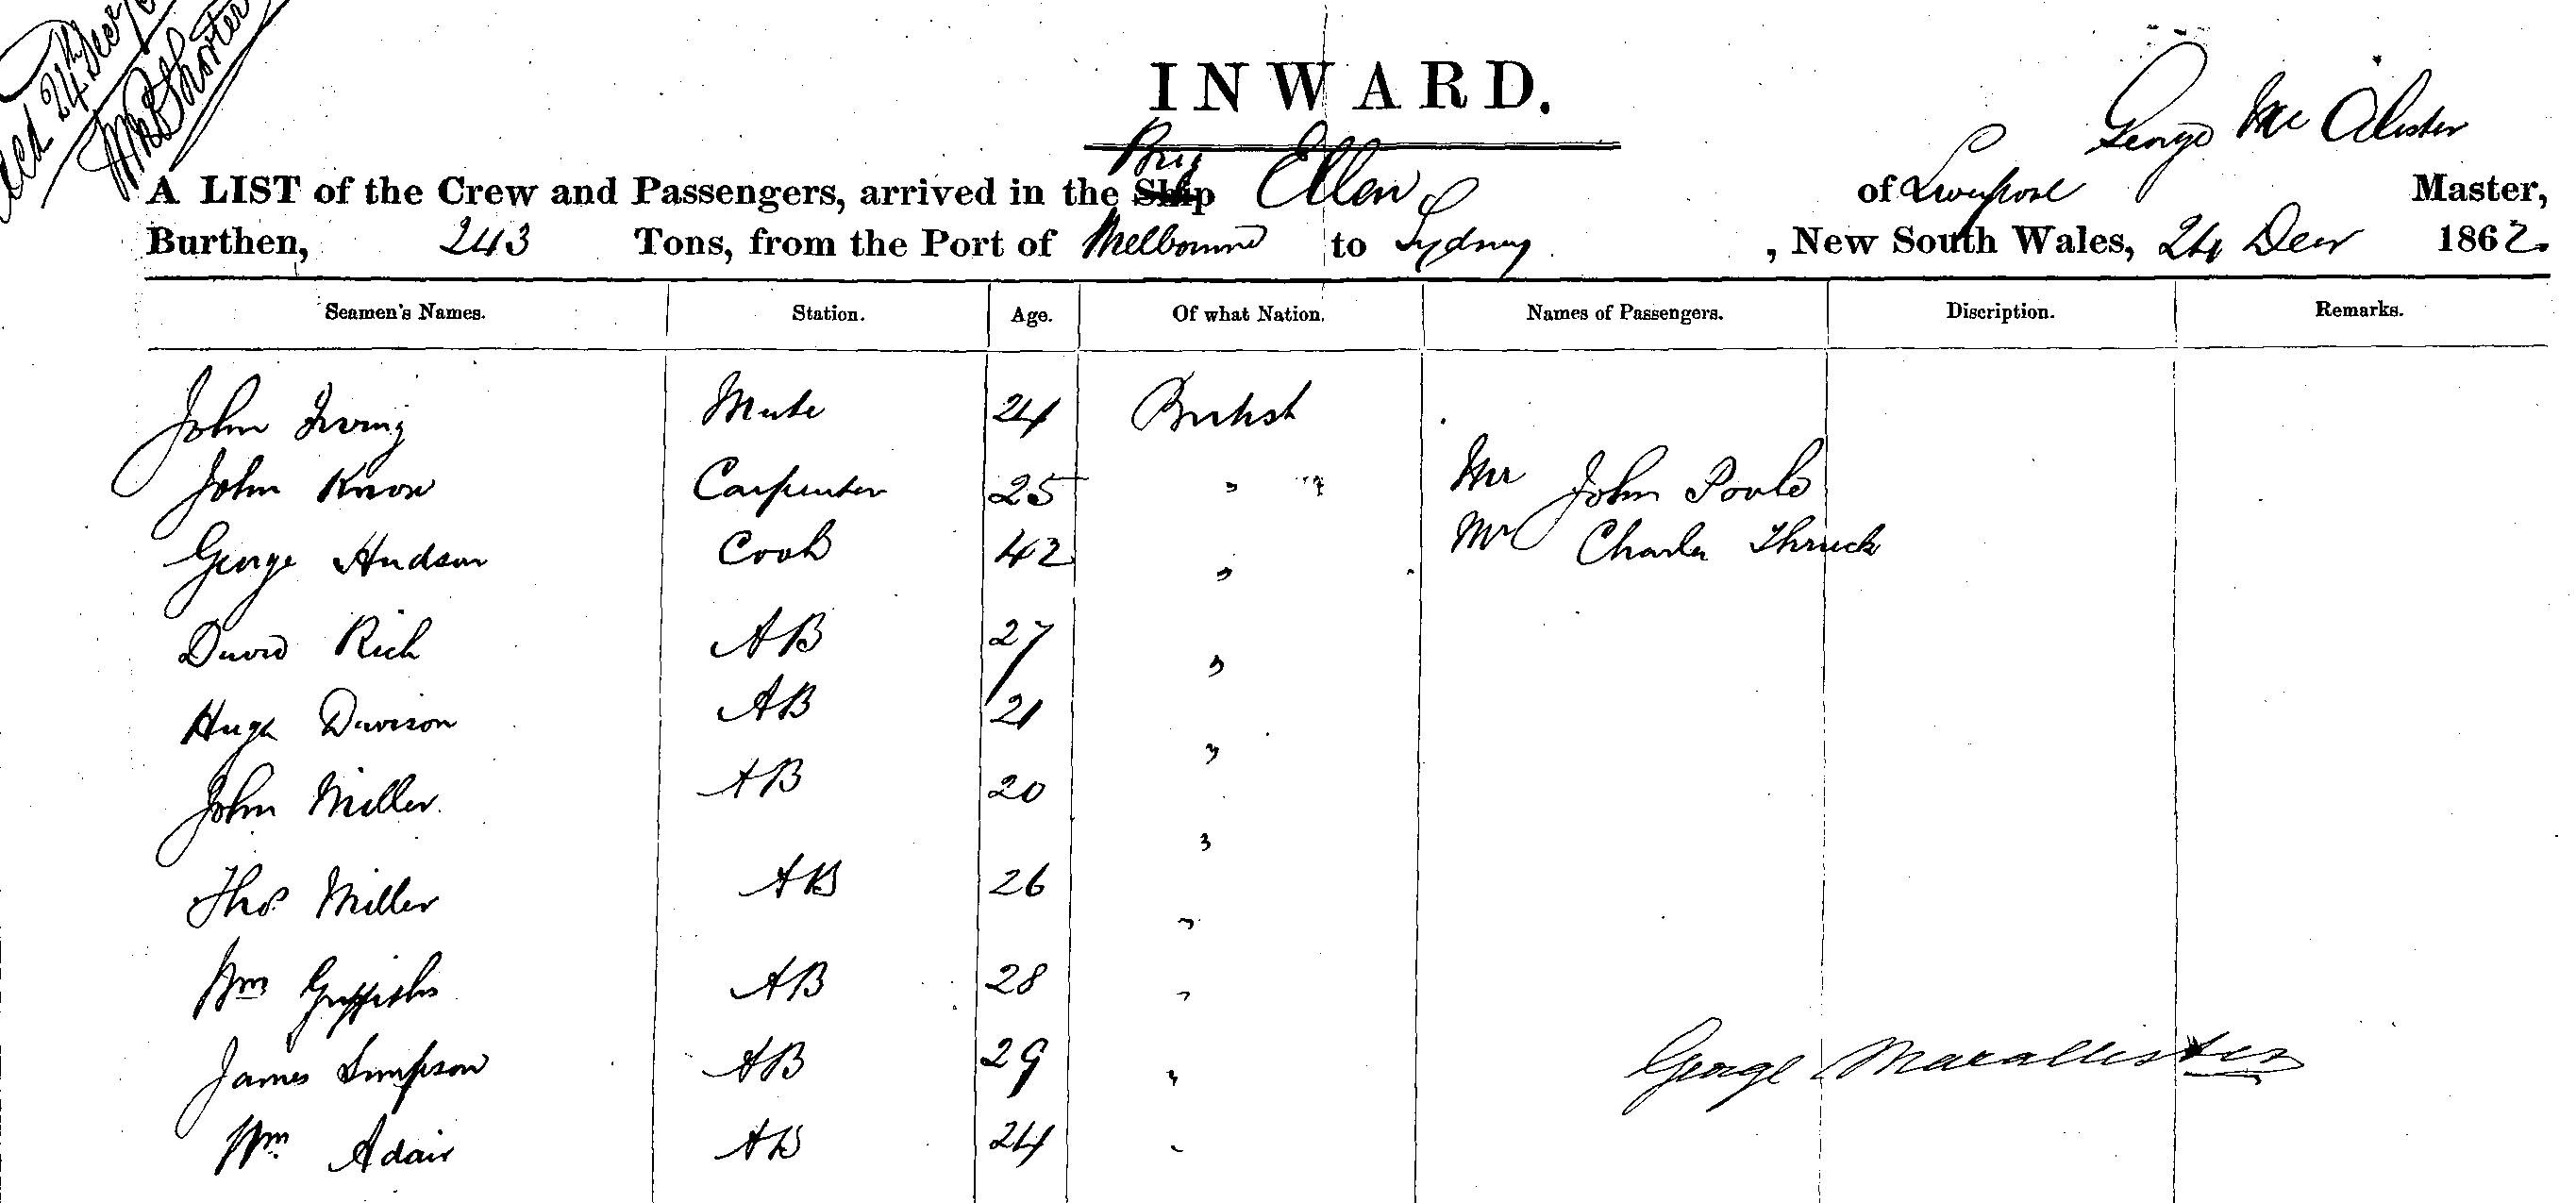 24th Decr
INWARD.
George Mc Alister
Brig
A LIST of the Crew and Passengers, arrived in the Ship Ellen of Liverpool Master,
Burthen, 243 Tons, from the Port of Melbourne to Sydney, New South Wales, 24 Decr 1862.
Seamen's Names. Station. Age. Of what Nation. Names of Passengers. Discription. Remarks.
John Irving Mate 24 British
John Knox Carpenter 25 " " Mr John Poole
George Hudson Cook 42 " Mr Charles
David Rich AB 27 "
Hugh Davison AB 21 "
John Miller AB 20 "
Thos Miller AB 26 "
Wm Griffiths AB 28 "
James Simpson AB 29 "
George Macallister
Wm Adair AB 24 "